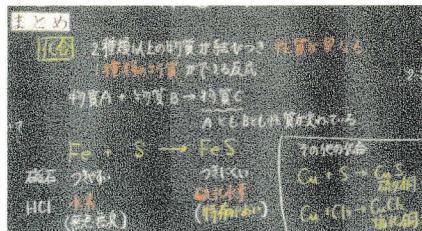 まとめ
化合 2種類以上の物質が結びつき 性質が異なる
1種類の物質ができる反応
物質A + 物質B → 物質C
AともBとも性質が変わっている
Fe + S → FeS
磁石 つきにくい
HCl 水素 硫化水素
(無色無臭) (特有のにおい)
その他の化合
Cu + S → CuS
硫化銅
Cu + Cl₂ → CuCl₂
塩化銅